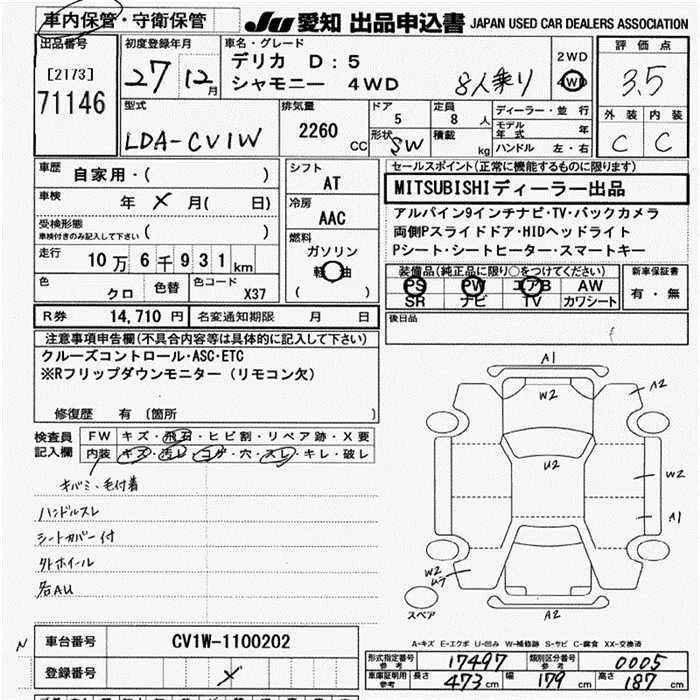 車内保管・守衛保管
JU 愛知 出品申込書 JAPAN USED CAR DEALERS ASSOCIATION
出品番号
[2173]
71146
初度登録年月
27 12月
車名・グレード
デリカ D:5
シャモニー 4WD
8人乗り
2WD
4WD
評価点
3.5
外装 内装
C C
型式
LDA-CV1W
排気量
2260 CC
ドア
5
形状
SW
定員
8 人
積載
kg
ディーラー・並行
モデル年式 年
ハンドル 左・右
車歴
自家用・( )
車検
年 × 月( 日)
受検形態
車検付きのみ記入して下さい ( )
走行
10万6千931km
色
クロ
色替
色コード
X37
シフト
AT
冷房
AAC
燃料
ガソリン
軽油
( )
セールスポイント(正常に機能するものに限ります)
MITSUBISHIディーラー出品
アルパイン9インチナビ・TV・バックカメラ
両側Pスライドドア・HIDヘッドライト
Pシート・シートヒーター・スマートキー
装備品(純正品に限り○をつけてください)
PS PW エアB AW
SR ナビ TV カワシート
新車保証書
有・無
R券 14,710円 名変通知期限 月 日
後日品
注意事項申告欄(不具合内容等は具体的に記入して下さい)
クルーズコントロール・ASC・ETC
※Rフリップダウンモニター(リモコン欠)
修復歴 有 〔箇所 〕
検査員
記入欄
FW キズ・飛石・ヒビ割・リペア跡・X要
内装 キズ・汚レ・コゲ・穴・スレ・キレ・破レ
キバミ・毛付着
ハンドルスレ
シートカバー付
外ホイール
各AU
A1
W2
A2
U2
W2
A1
W2
A2
スペア
A-キズ E-エクボ U-凹み W-補修跡 S-サビ C-腐食 XX-交換済
N
車台番号 CV1W-1100202
登録番号 ×
型式指定番号
参考
17497
類別区分番号
参考
0005
車庫証明用
参考
長さ 473cm 幅 179cm 高さ 187cm